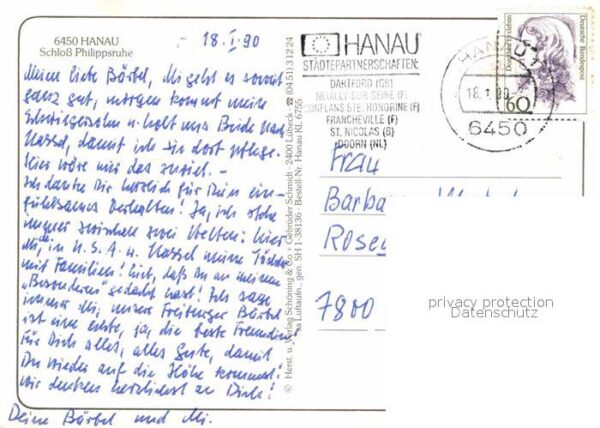 6450 HANAU
Schloß Philippsruhe
18.I.90
Meine liebe Bärbel, Mi geht es soweit
ganz gut, morgen kommt mein
Schwiegersohn u. holt uns Beide nach
Kassel, damit ich sie dort pflege.
Hier wäre mir das zuviel. -
Ich danke Dir herzlich für Dein ein-
fühlsames Verhalten! Ja, ich stehe
immer zwischen zwei Welten: hier
Mi, in U.S.A. u. Kassel meine Töchter
mit Familien! Lieb, daß Du an meinen
"Besonderen" gedacht hast! Ich sage
immer Mi, unsere Freiburger Bärbel
ist eine echte, ja, die beste Freundin
Für Dich alles, alles Gute, damit
Du wieder auf die Höhe kommst!
Wir denken herzlichst an Dich!
Deine Bärbel und Mi.
© Herst. u. Verlag Schöning & Co + Gebrüder Schmidt · 2400 Lübeck · ☎ (04 51) 3 12 24
Luftaufn., gen. SH 1-38136 · Bestell-Nr. Hanau KL 6755
HANAU
STÄDTEPARTNERSCHAFTEN:
DARTFORD (GB)
NEUILLY-SUR-SEINE (F)
CONFLANS STE. HONORINE (F)
FRANCHEVILLE (F)
ST. NICOLAS (B)
DOORN (NL)
HANAU 1
18.1.90
6450
Deutsche Bundespost
60
Frau
Barba
Rose
7800
privacy protection
Datenschutz